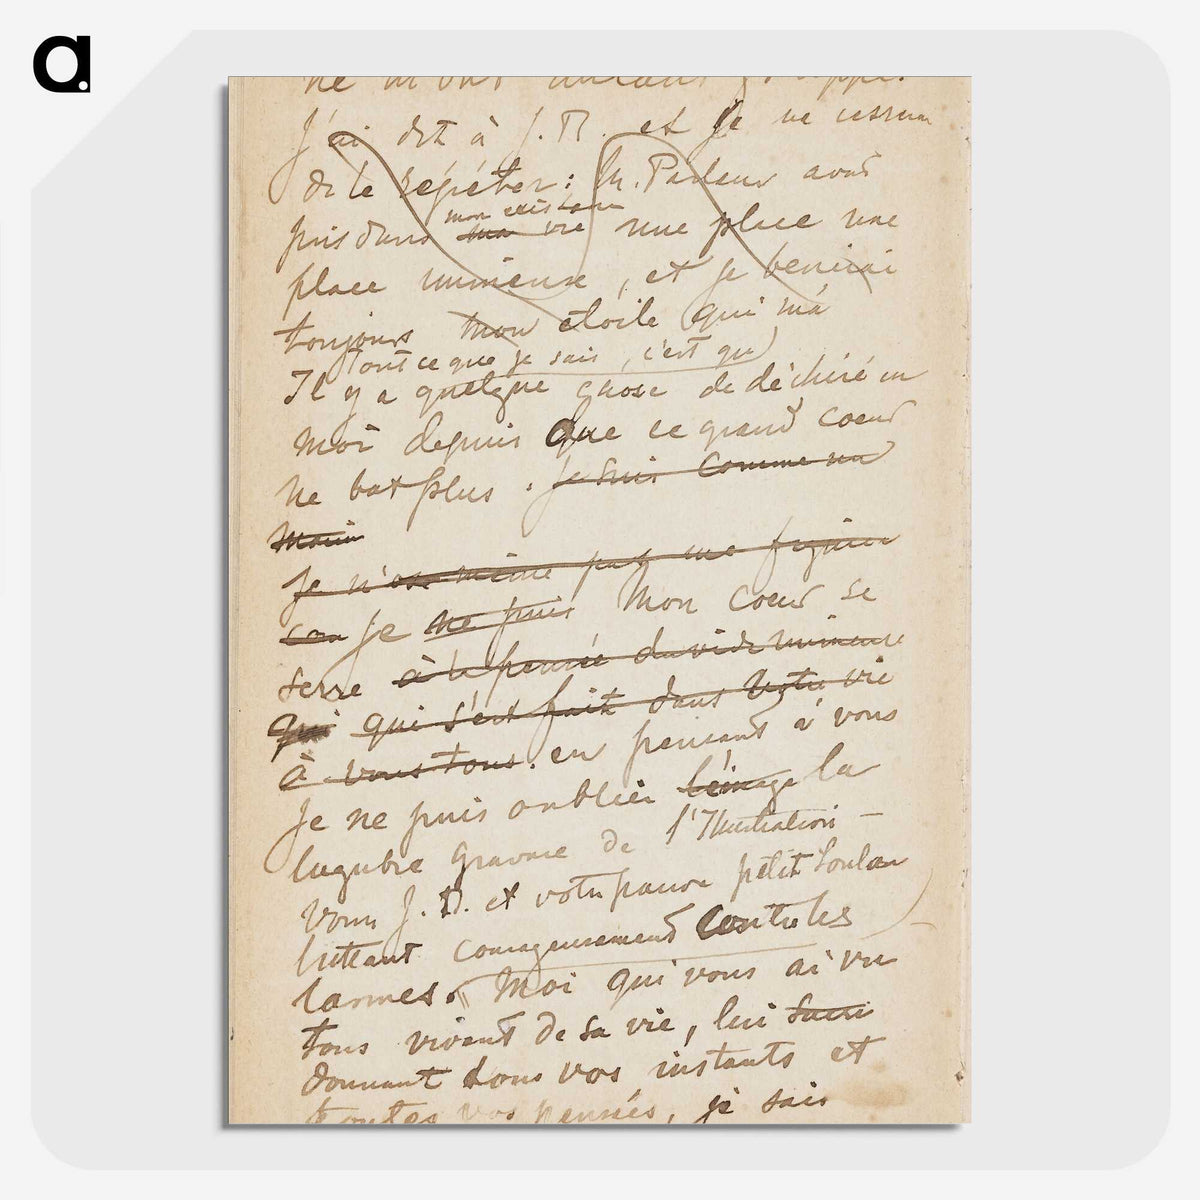 a.
ne m'ont autant
J'ai dit à J. B. et je ne cesserai
de le répéter : M. Pasteur avait
mon existence
pris dans ma vie une place une
place immense, et je bénirai
toujours mon étoile qui m'a
Tout ce que je sais, c'est qu'
Il y a quelque chose de déchiré en
moi depuis que ce grand coeur
ne bat plus. Je suis comme un
Marin
Je n'ose même pas me figurer
son Je ne puis Mon coeur se
serre à la pensée du vide immense
qui qui s'est fait dans votre vie
à vous tous. en pensant à vous
Je ne puis oublier l'image la
lugubre gravure de l'Illustration —
vous J. B. et votre pauvre petit
luttant courageusement contre les
larmes. Moi qui vous ai vu
tous vivant de sa vie, lui
donnant tous vos instants et
toutes vos pensées, je sais